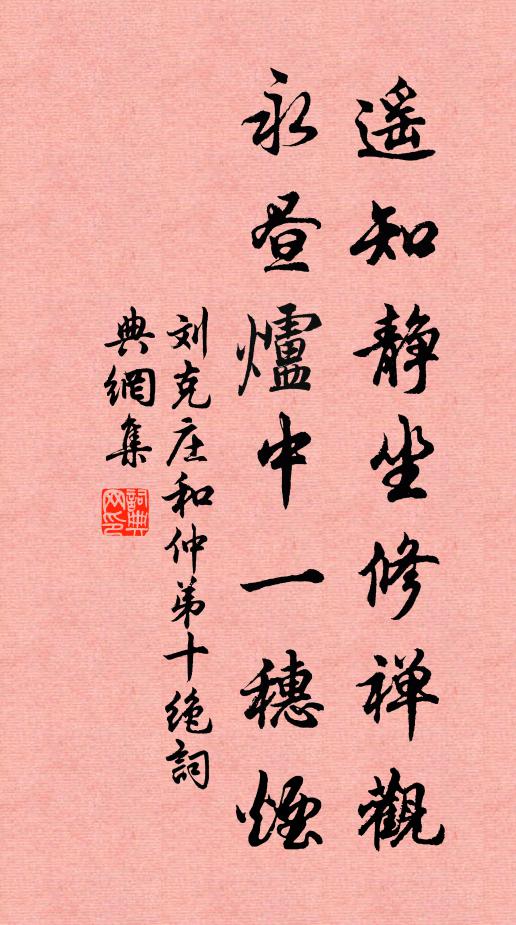 遥知静坐修禅觀
永昼爐中一穗煙
刘克庄和仲弟十绝詞
典網集
詞典网印